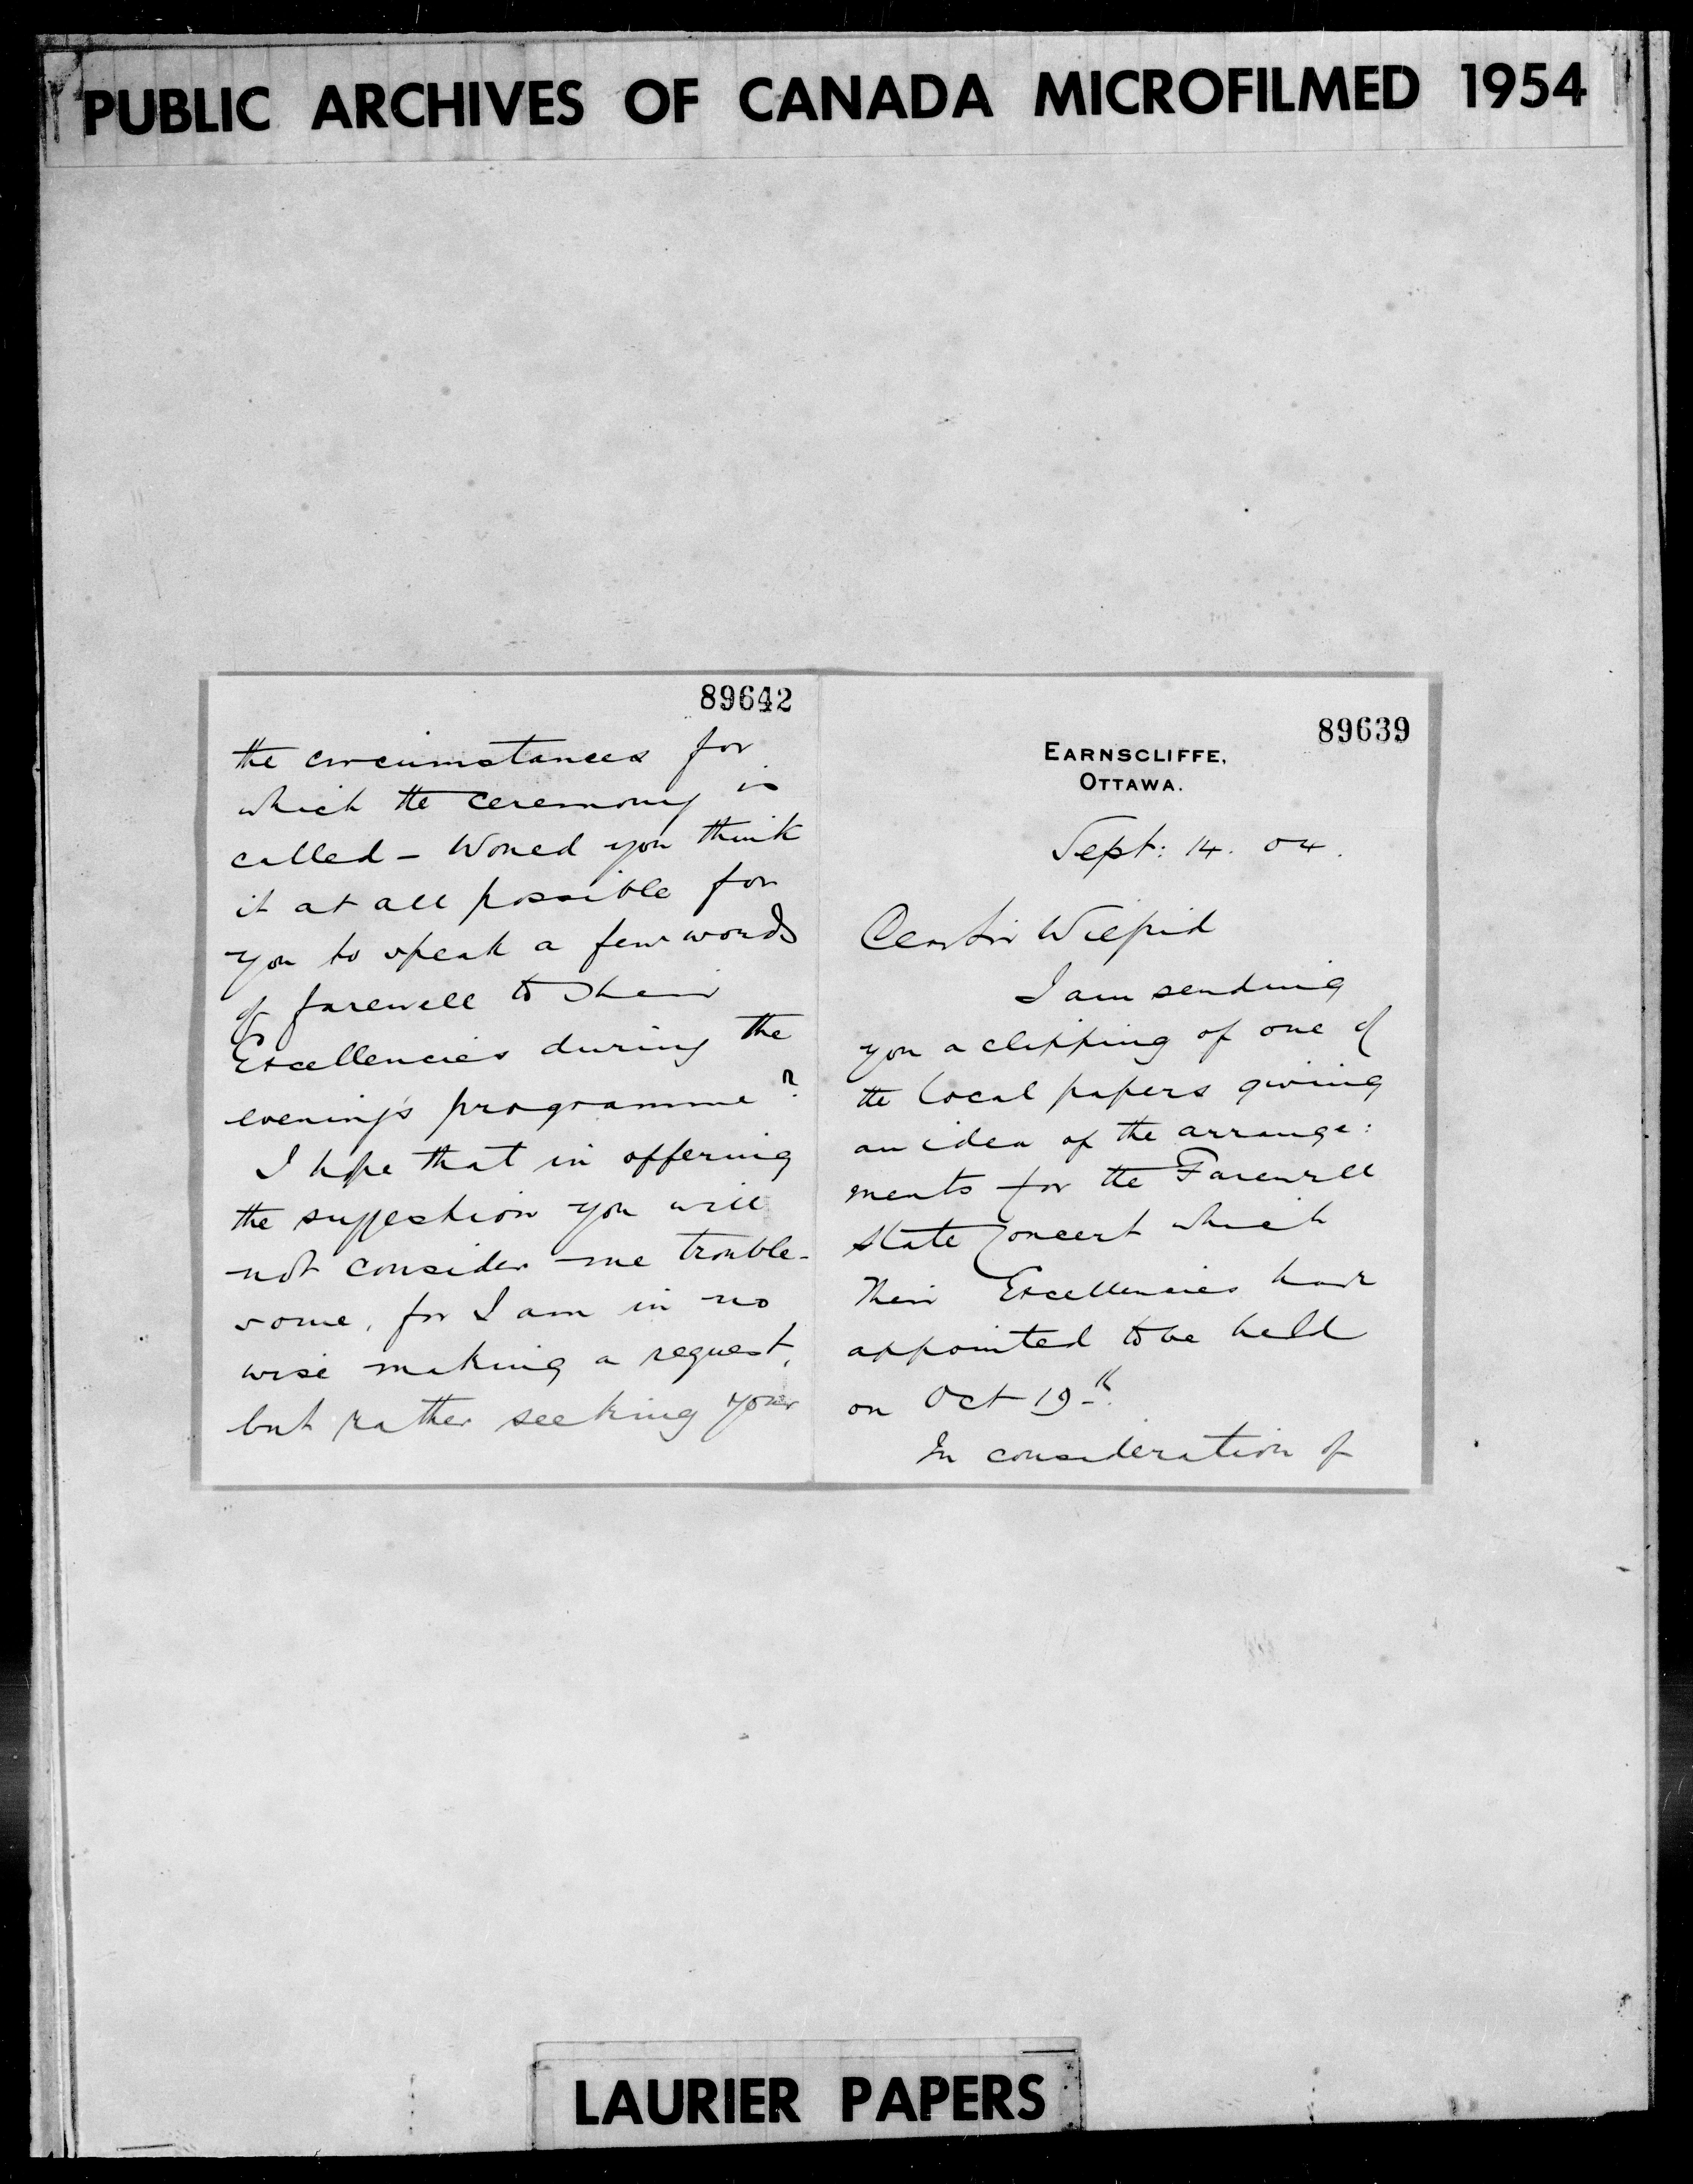 PUBLIC ARCHIVES OF CANADA MICROFILMED 1954
89642
the circumstances for
which the ceremony is
called - Would you think
it at all possible for
you to speak a few words
of farewell to Their
Excellencies during the
evening's programme?
I hope that in offering
the suggestion you will
not consider me trouble-
some, for I am in no
wise making a request,
but rather seeking your
89639
EARNSCLIFFE,
OTTAWA.
Sept: 14. 04.
Dear Sir Wilfrid
I am sending
you a clipping of one of
the local papers giving
an idea of the arrange:
ments for the Farewell
State Concert which
Their Excellencies have
appointed to be held
on Oct 19th.
In consideration of
LAURIER PAPERS